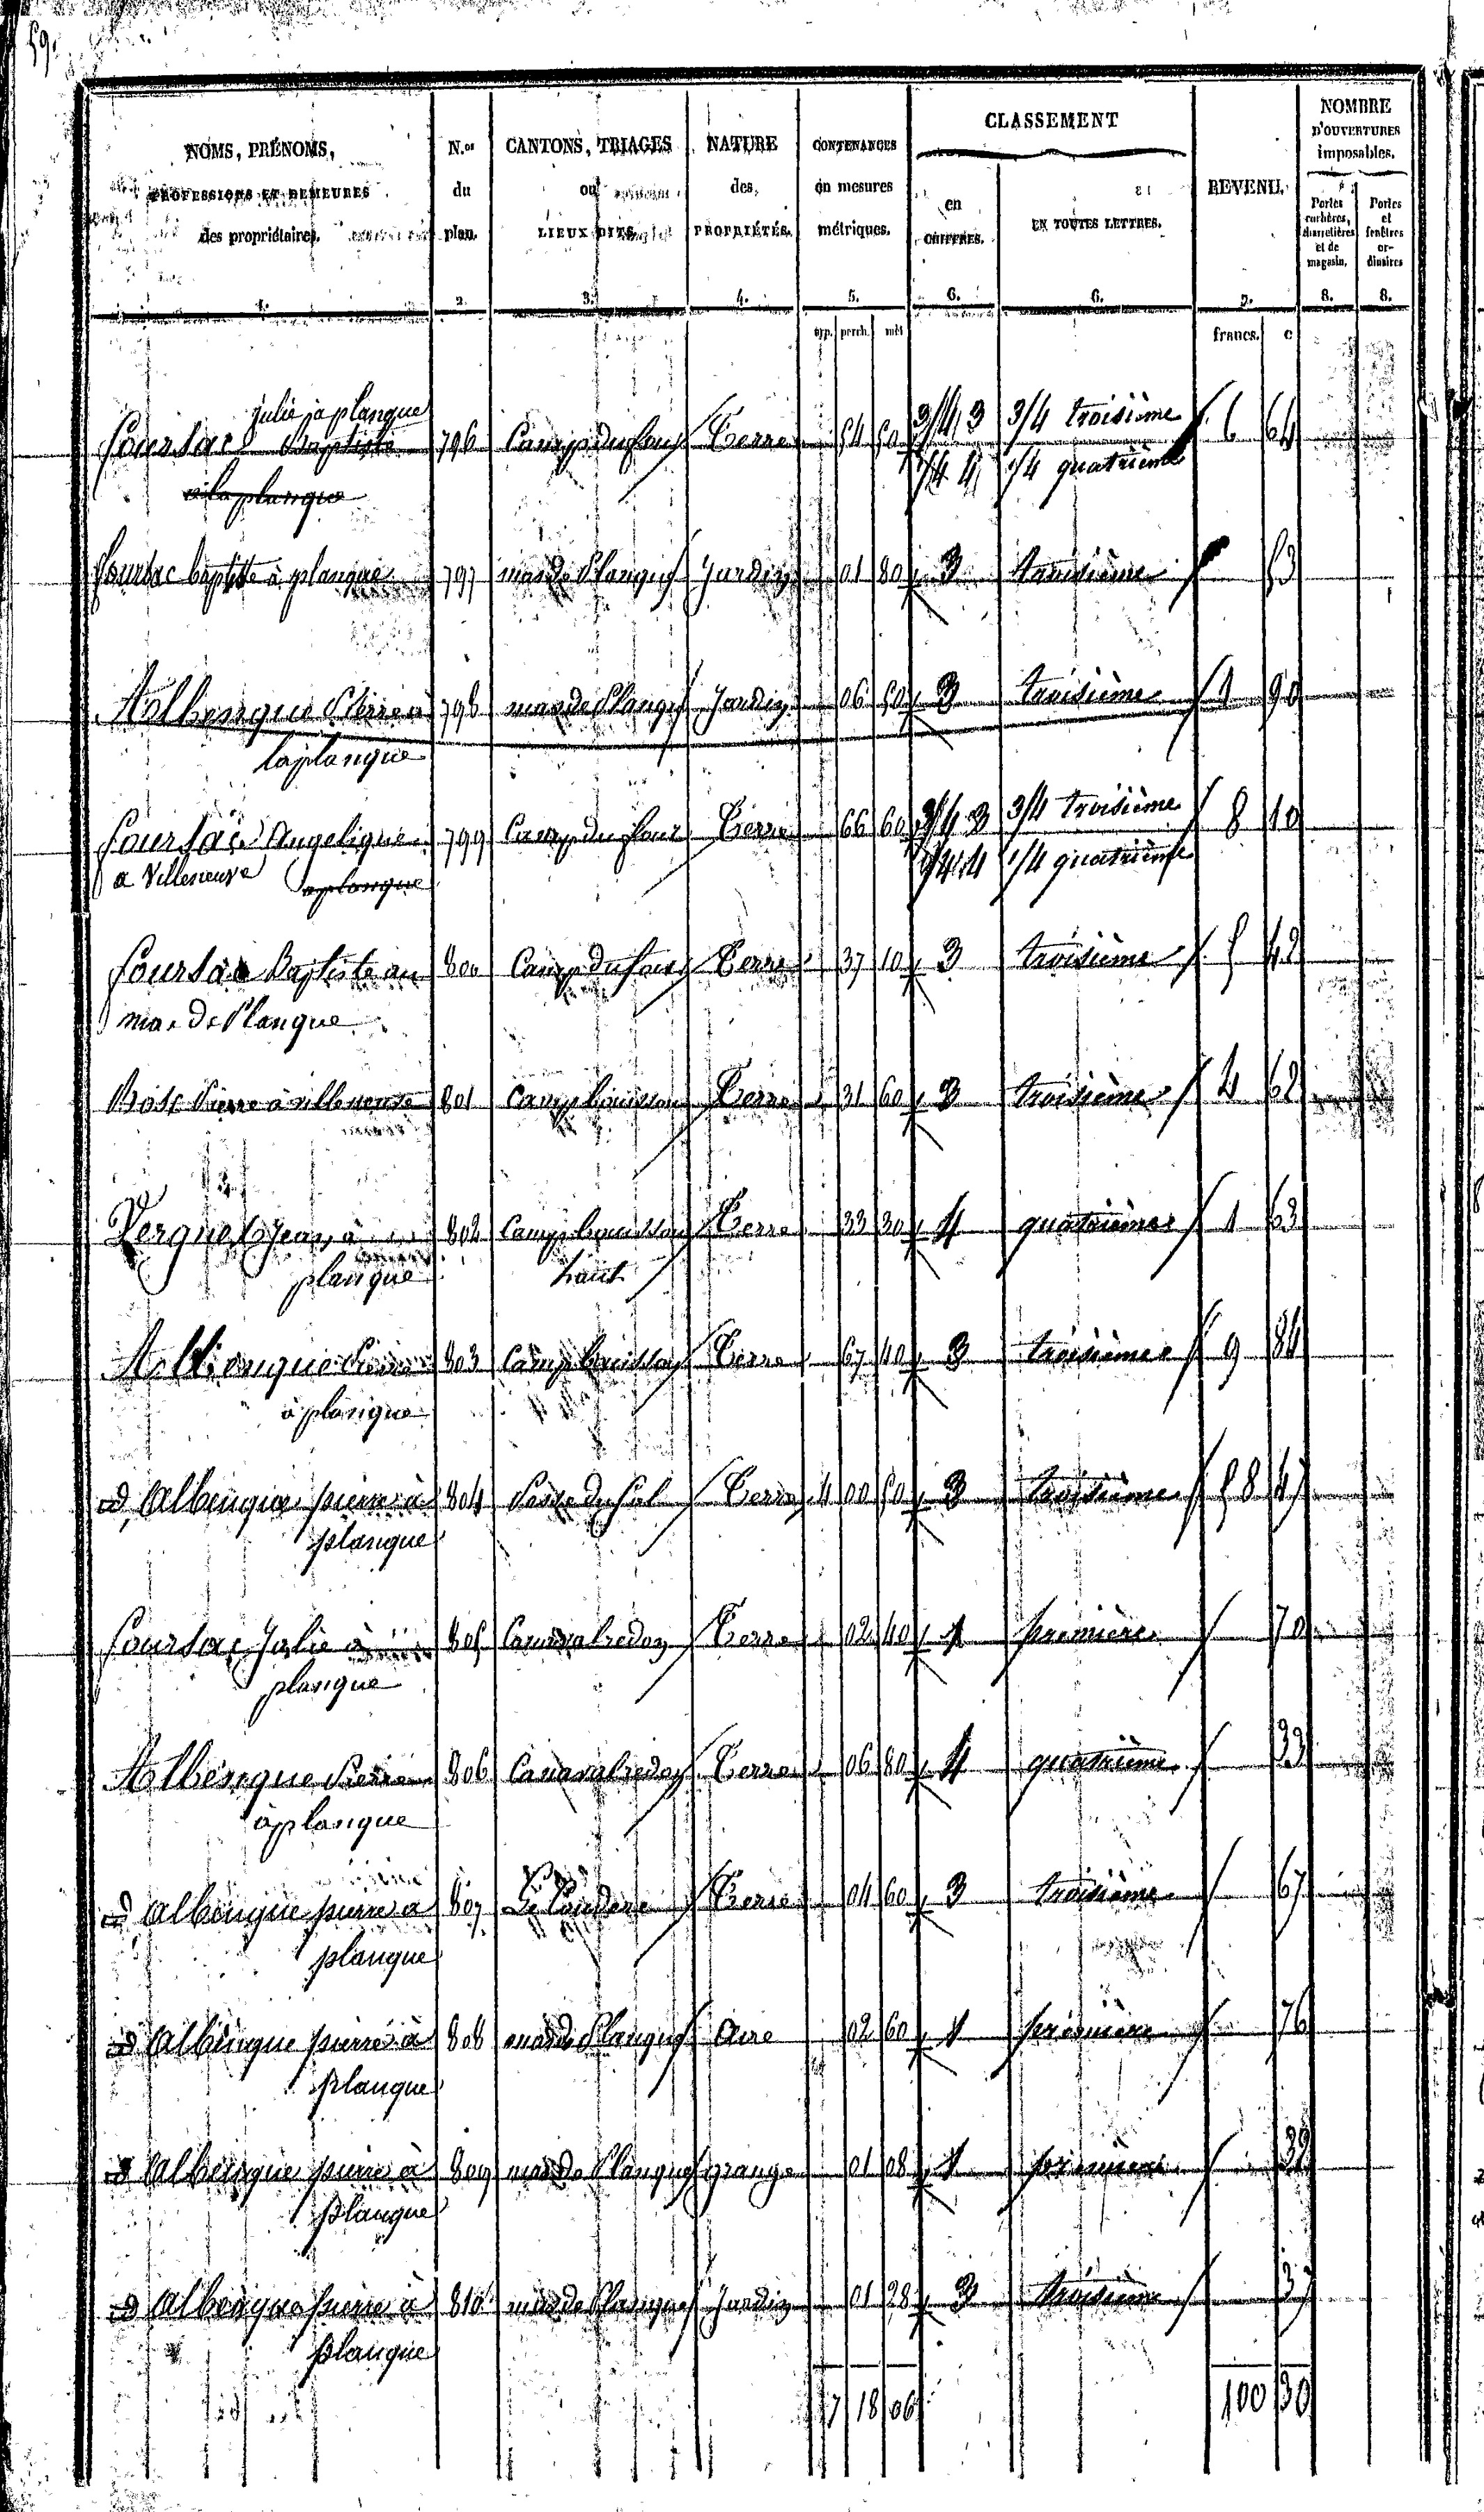 59.
NOMS, PRÉNOMS, PROFESSIONS ET DEMEURES des propriétaires. N.os du plan. CANTONS, TRIAGES ou LIEUX DITS. NATURE des PROPRIÉTÉS. CONTENANCES en mesures métriques. CLASSEMENT en CHIFFRES. EN TOUTES LETTRES. REVENU. NOMBRE D'OUVERTURES imposables. Portes cochères, charretières et de magasin. Portes et fenêtres ordinaires
1. 2. 3. 4. 5. 6. 6. 7. 8. 8.
arp. perch. mèt francs. c
julie à planque
Foursac Baptiste 796 Camp du four Terre 54 50 3/4 3 3/4 troisième 6 64
à la planque 1/4 4 1/4 quatrième
foursac baptiste à planque 797 mas de Planque Jardin 01 80 3 troisième 53
Albenque Pierre à 798 mas de Planque Jardin 06 50 3 troisième 1 90
laplanque
Foursac Angelique 799 Camp du four Terre 66 60 3/4 3 3/4 troisième 8 10
a Villeneuve aplanque 1/4 4 1/4 quatrième
Foursac Baptiste au 800 Camp du four Terre 37 10 3 troisième 5 42
mas de Planque
Bosc Pierre à villeneuve 801 Camp bouissou Terre 31 60 3 troisième 4 62
Vergnet Jean à 802 Camp bouissou Terre 33 30 4 quatrième 1 63
planque haut
Albenque Pierre 803 Camp bouissou Terre 67 40 3 troisième 9 84
à planque
d Albenque pierre à 804 Terre 4 00 50 3 troisième 58 47
planque
Foursac Julie à 805 Terre 02 40 1 première 70
planque
Albenque Pierre 806 Terre 06 80 4 quatrième 33
à planque
d albenque pierre a 807 Terre 04 60 3 troisième 67
planque
d albenque pierre à 808 mas de Planque Aire 02 60 1 première 76
planque
d albenque pierre à 809 mas de Planque grange 01 08 1 première 32
planque
d albenque pierre à 810 mas de Planque Jardin 01 28 3 troisième 37
planque
7 18 06 100 30